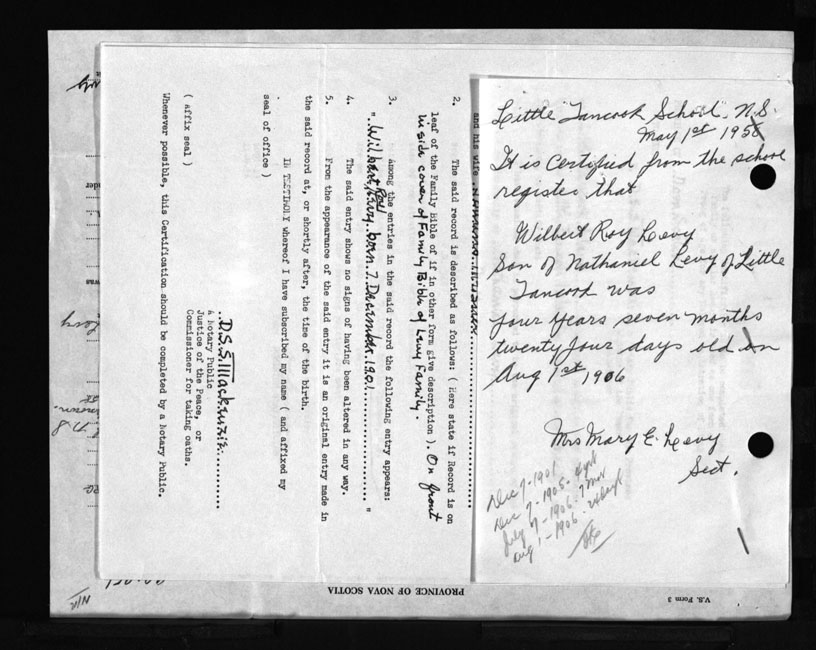 Little Tancook School, N.S.
May 1st 1958
It is certified from the school
register that
Wilbert Roy Levy
Son of Nathaniel Levy of Little
Tancook was
four years seven months
twenty four days old on
Aug 1st 1906
Mrs Mary E. Levy
Sect.
Dec 7-1901
Dec 7-1905-
July 7-1906.
Aug 1-1906.
and his wife
2. The said record is described as follows: ( Here state if Record is on
leaf of the Family Bible of if in other form give description ). On front
inside cover of Family Bible of Levy Family.
3. Among the entries in the said record the following entry appears:
". Wilbert Roy Levy..born.7.December.1901............... "
4. The said entry shows no signs of having been altered in any way.
5. From the appearance of the said entry it is an original entry made in
the said record at, or shortly after, the time of the birth.
IN TESTIMONY whereof I have subscribed my name ( and affixed my
seal of office )
..D.S.S. Mackenzie.........
A Notary Public
Justice of the Peace, or
Commissioner for taking oaths.
( affix seal )
Whenever possible, this Certification should be completed by a Notary Public.
PROVINCE OF NOVA SCOTIA
V.S. Form 3